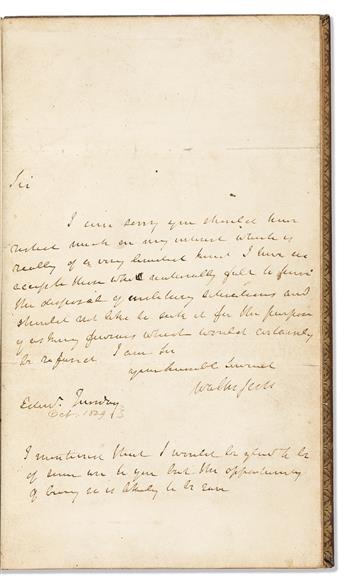 Sir
I am sorry you should have
rested much on my interest which is
really of a very limited kind I have no
access to those who naturally
the disposal of military situations and
should not like to seek it for the purpose
of asking favours which would certainly
be refused I am Sir
your humble Servant
Walter Scott
Edinr. Tuesday
Oct. 1824
I mentioned that I would be glad to be
of some use to you but the opportunity
of being so is likely to be rare